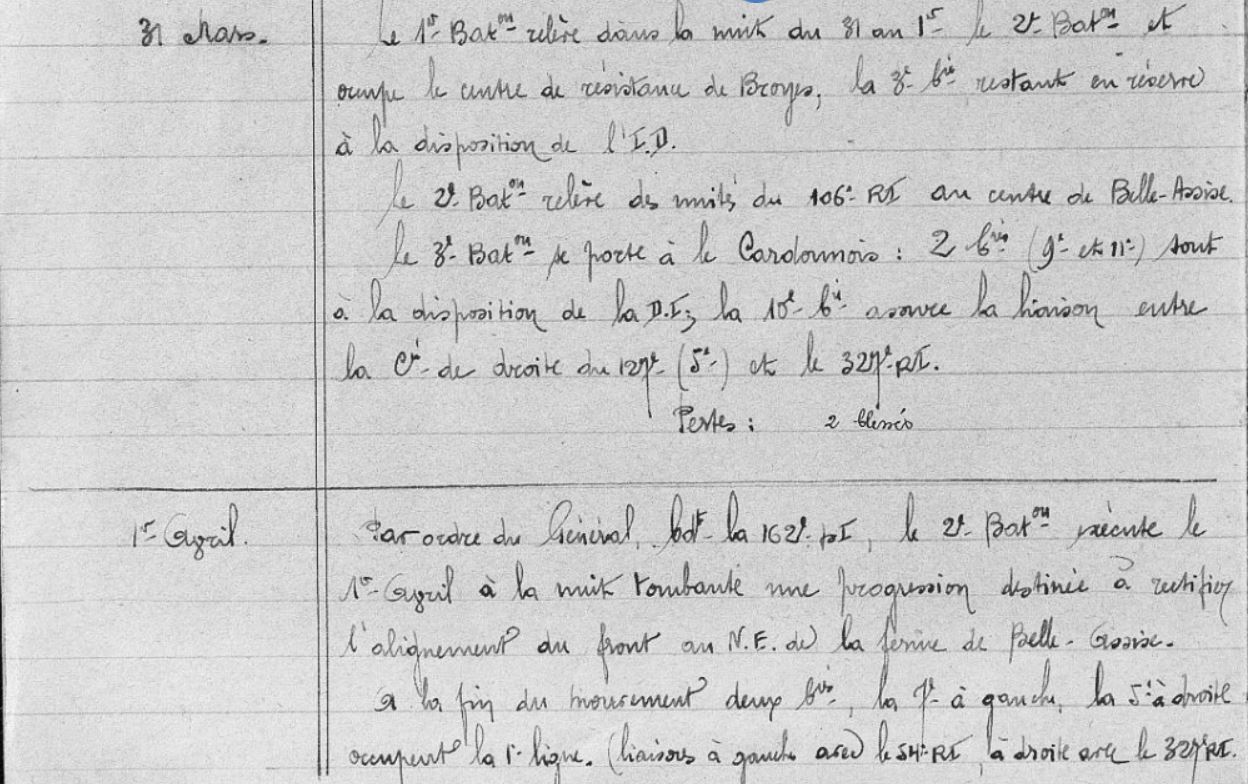 31 Mars.
Le 1er Baton relève dans la nuit du 31 au 1er le 2e Baton et
occupe le centre de résistance de Broyes, la 3e Cie restant en réserve
à la disposition de l'I.D.
Le 2e Baton relève des unités du 106e RI au centre de Belle-Assise.
Le 3e Baton se porte à le Cardonnois : 2 Cies (9e et 11e) sont
à la disposition de la D.I; la 10e Cie assure la liaison entre
la Cie de droite du 127e (5e) et le 327e RI.
Pertes : 2 blessés
1er Avril.
Par ordre du Général, Cdt la 162e DI, le 2e Baton exécute le
1er Avril à la nuit tombante une progression destinée à rectifier
l'alignement du front au N.E. de la ferme de Belle-Assise.
A la fin du mouvement deux Cies, la 7e à gauche, la 5e à droite
occupent la 1e ligne. (liaisons à gauche avec le 54e RI, à droite avec le 327e RI.